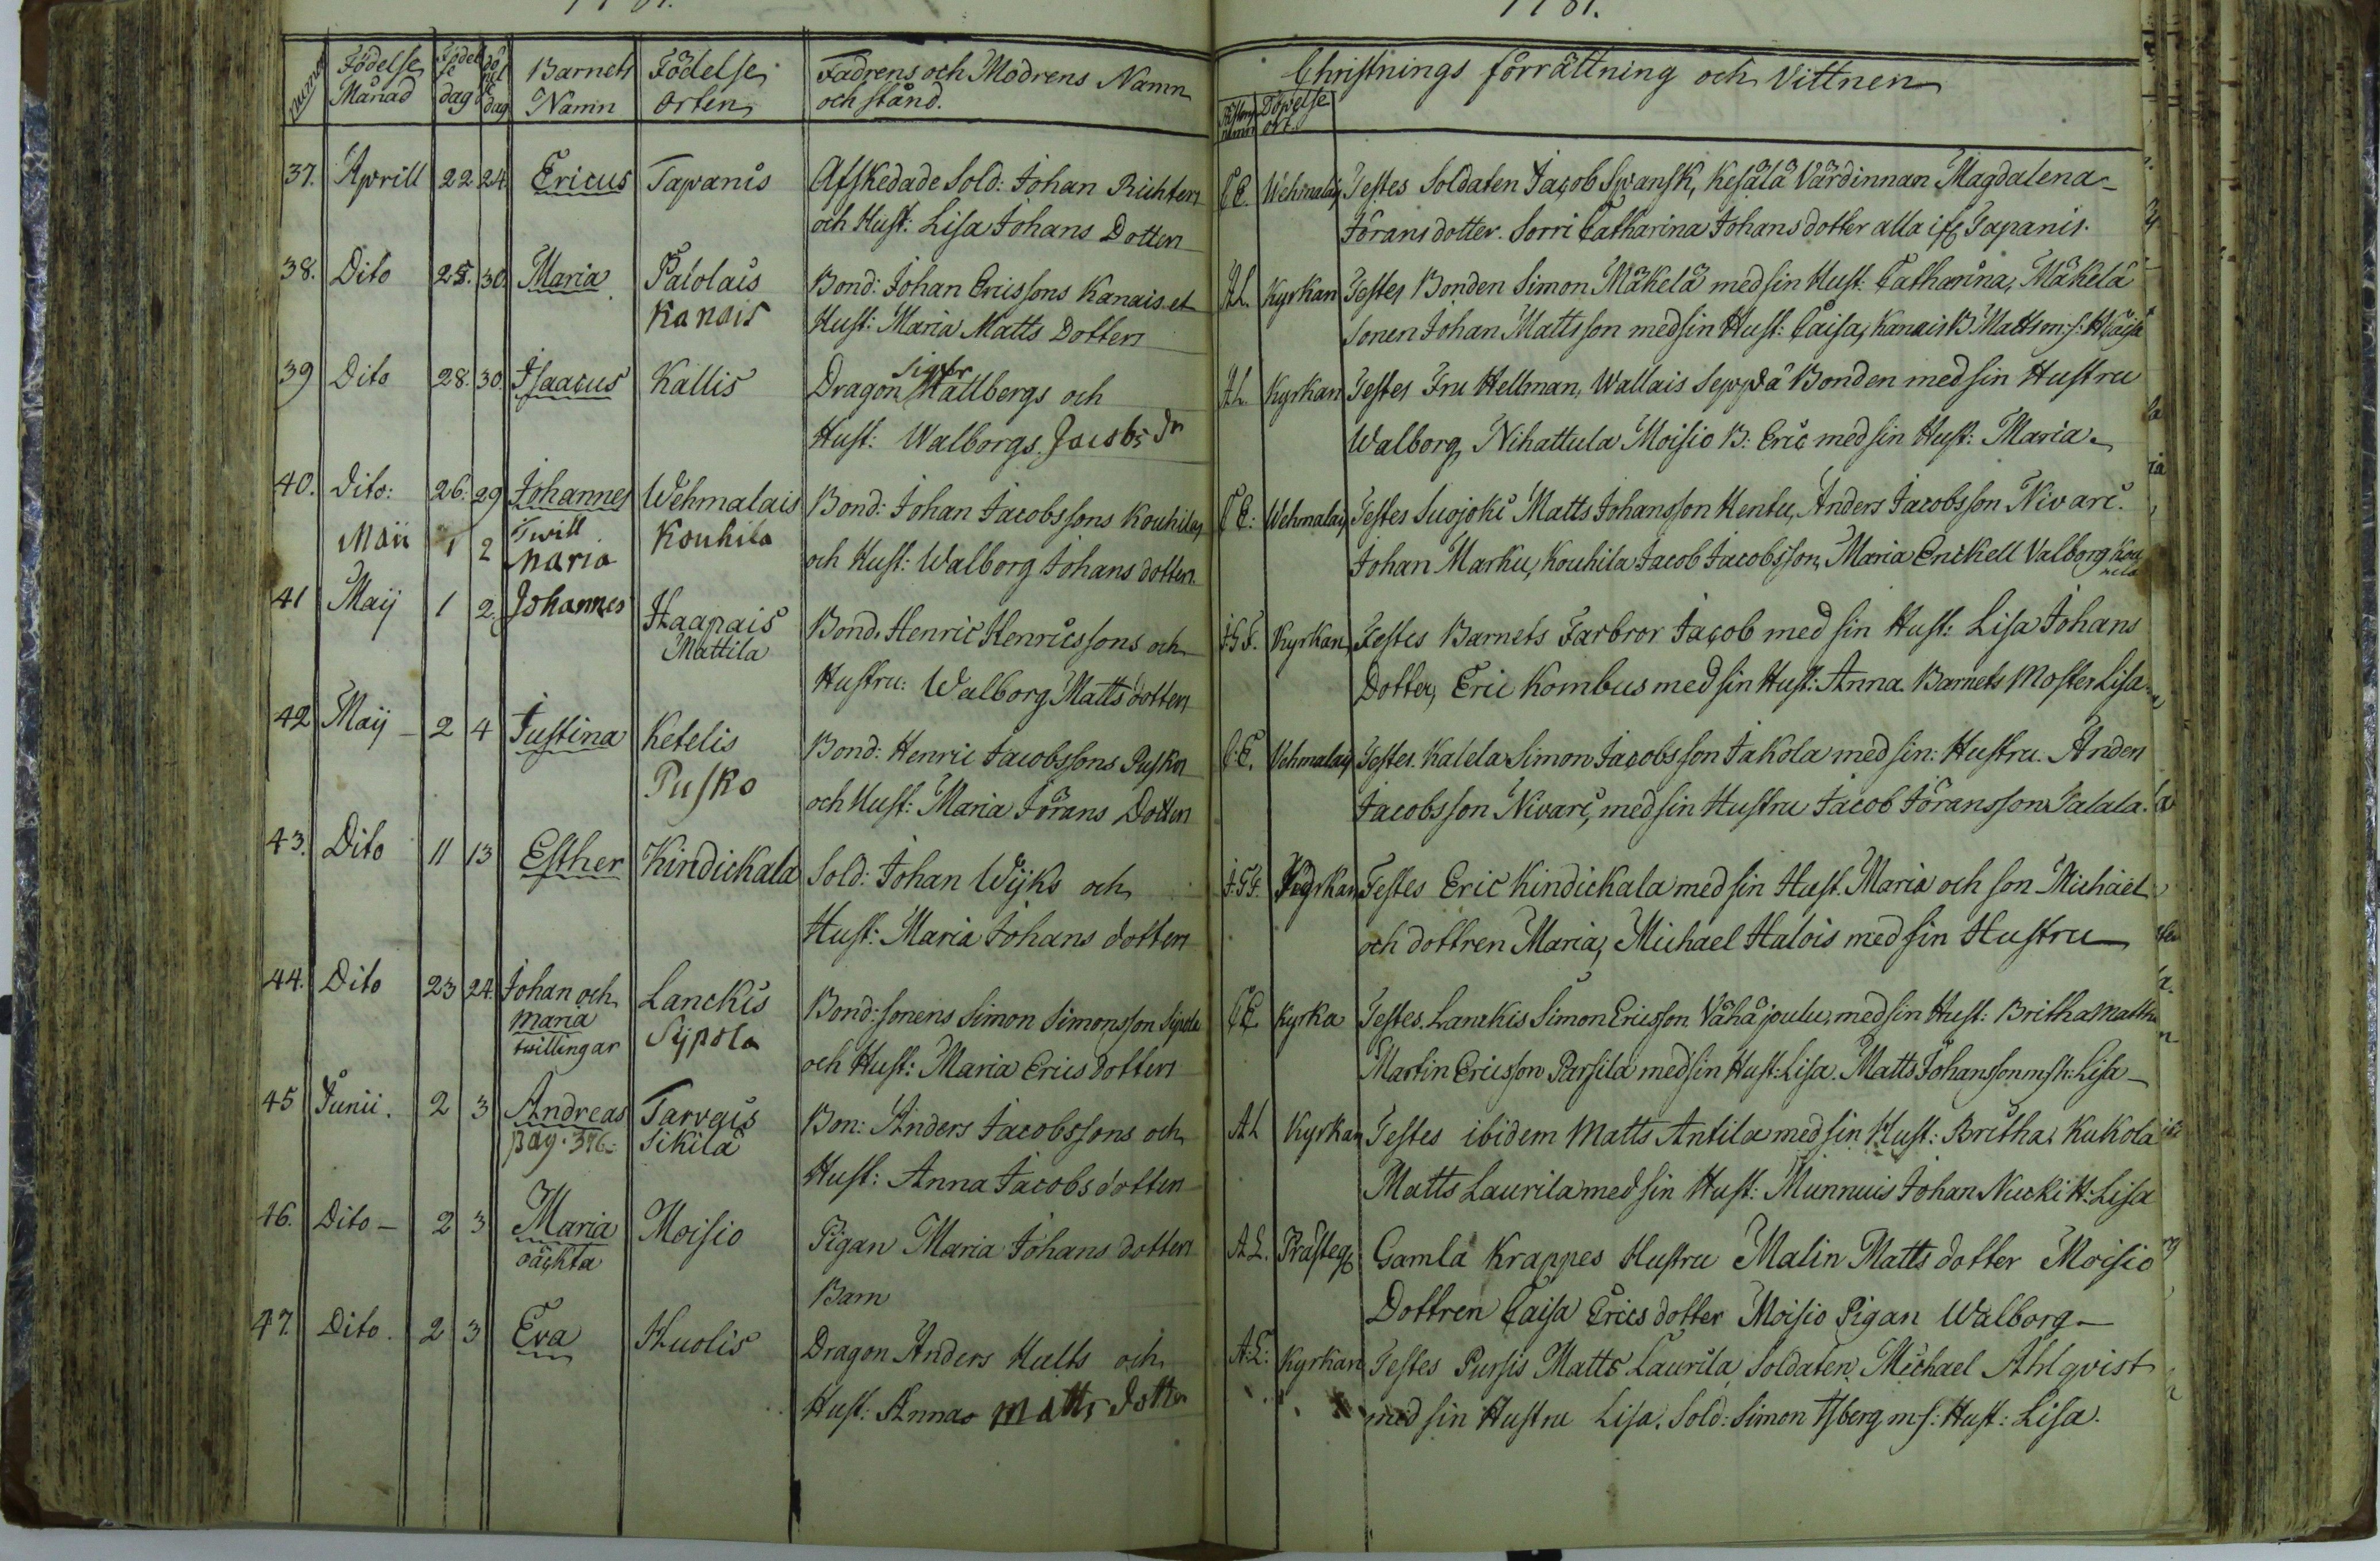 1781.
Födelse Månad
Födelse dag
dag
Barnets Namn
Födelse orten
Fadrens och Modrens Namn och stånd.
Christnings förrättning och Vittnen
Döpelse ort.
37. Aprill 22 24 Ericus Tapanis Afskedade Sold: Johan Richters C.E. Wehmalais Testes Soldaten Jacob Svansk, Kesälä Värdinnan Magdalena
och Hust: Lisa Johans Dotter Jörans dotter. Sorri Catharina Johans dotter alla ifr Tapanis.
38. Dito 25. 30. Maria Patolais Bond: Johan Ericssons Kanais et A.L. Kyrkan Testes Bonden Simon Mäkelä med sin Hust: Catharina, Mäkelä
Kanais Hust: Maria Matts Dotter sonen Johan Mattsson med sin Hust: Caisa, Kanais B. Matts m: s: H Caisa
39 Dito 28. 30. Isaacus Kallis Dragon Hallbergs och A.L. Kyrkan Testes Fru Hellman, Wallais Seppä Bonden med sin Hustru
Hust: Walborgs Jacobs dr Walborg, Nihattula Moisio B: Eric med sin Hust: Maria.
40. Dito: 26. 29 Johannes Wehmalais Bond: Johan Jacobssons Kouhilas C.E: Wehmalais Testes Suojoki Matts Johansson Hentu, Anders Jacobsson Nivari.
Maii 1 2 Twill Maria Kouhila och Hust: Walborg Johans dotter. Johan Marku, Kouhila Jacob Jacobsson, Maria Enckell Valborg Kouhila
41 Maij 1 2 Johannes Haapais Mattila Bond. Henric Henricssons och J.G.F. Kyrkan Testes Barnets Farbror Jacob med sin Hust: Lisa Johans
Hustru: Walborg Matts dotter Dotter, Eric Kombus med sin Hust: Anna. Barnets Moster Lisa
42 Maij - 2 4 Justina Ketelis Bond: Henric Jacobssons Puskos C.E. Vehmalais Testes. Kalela Simon Jacobsson Jakola med sin: Hustru. Anders
Pusko och Hust: Maria Jörans Dotter Jacobsson Nivari, med sin Hustru Jacob Jöransson Talala.
43. Dito 11 13 Esther Kindickala Sold: Johan Wijks och J.G.F. Kyrkan Testes Eric Kindickala med sin Hust. Maria och son Michäel
Hust: Maria Johans dotter och dottren Maria, Michael Halois med sin Hustru
44. Dito 23 24. Johan och Lanckis Bond: sonens Simon Simonsson Sijpola C.E. Kyrka Testes. Lanckis Simon Ericsson Vähäjoulu, med sin Hust: Britha Matths
Maria twillingar Sijpola och Hust: Maria Erics dotter Martin Ericsson Parsila med sin Hust: Lisa. Matts Johansson m s h: Lisa
45 Junii. 2 3 Andreas Tarvais Bon: Anders Jacobssons och A.L Kyrkan Testes ibidem Matts Antila med sin Hust: Britha, Kukola
pag. 376. Sikilä Hust: Anna Jacobs dotter Matts Laurila med sin Hust: Munnuis Johan Nucki H: Lisa
46. Dito - 2 3 Maria Moisio Pigan Maria Johans dotters A.L. Prästeg Gamla Krappes Hustru Malin Matts dotter Moisio
oäckta Barn Dottren Caisa Erics dotter Moisio Pigan Walborg
47. Dito. 2 3 Eva Huolis Dragon Anders Hults och A:L: Kyrkan Testes Pursis Matts Laurila, Soldaten Michael Ahlqvist
Hust: Annas Matts dotter med sin Hustru Lisa. Sold: Simon Isberg m: s: Hust: Lisa.